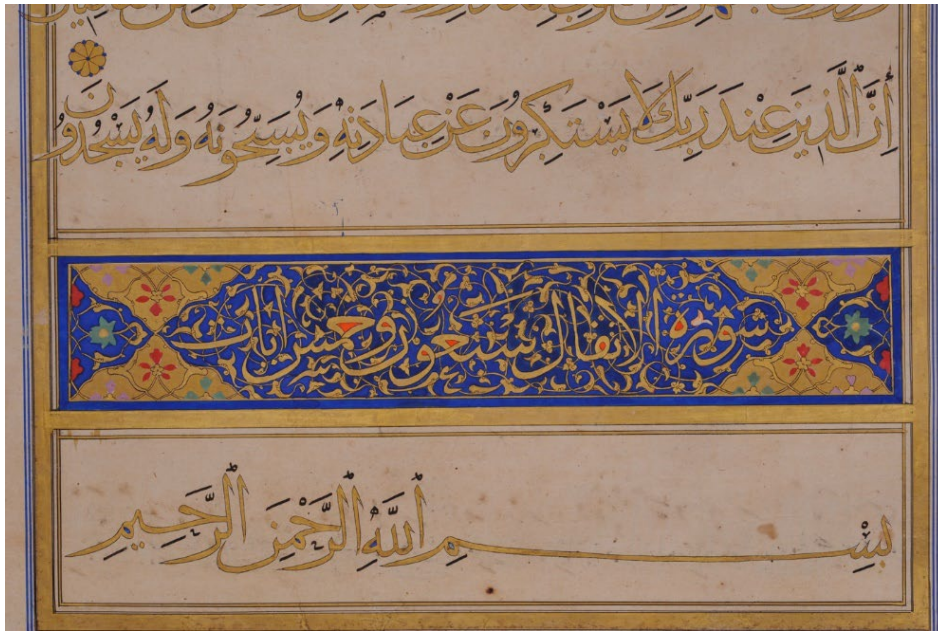 إِنَّ الَّذِينَ عِنْدَ رَبِّكَ لَا يَسْتَكْبِرُونَ عَنْ عِبَادَتِهِ وَيُسَبِّحُونَهُ وَلَهُ يَسْجُدُونَ
سورة الانفال سبعون وخمس ايات
بِسْمِ اللَّهِ الرَّحْمَنِ الرَّحِيمِ